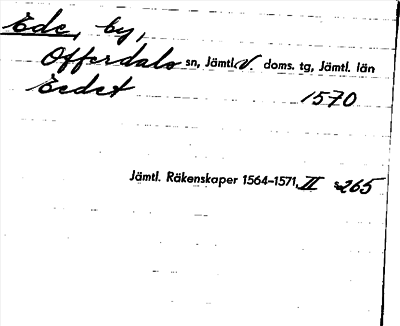 Ede, by,
Offerdals sn, Jämtl. V. doms. tg, Jämtl. län
Eedet 1570
Jämtl. Räkenskaper 1564-1571, II s. 265